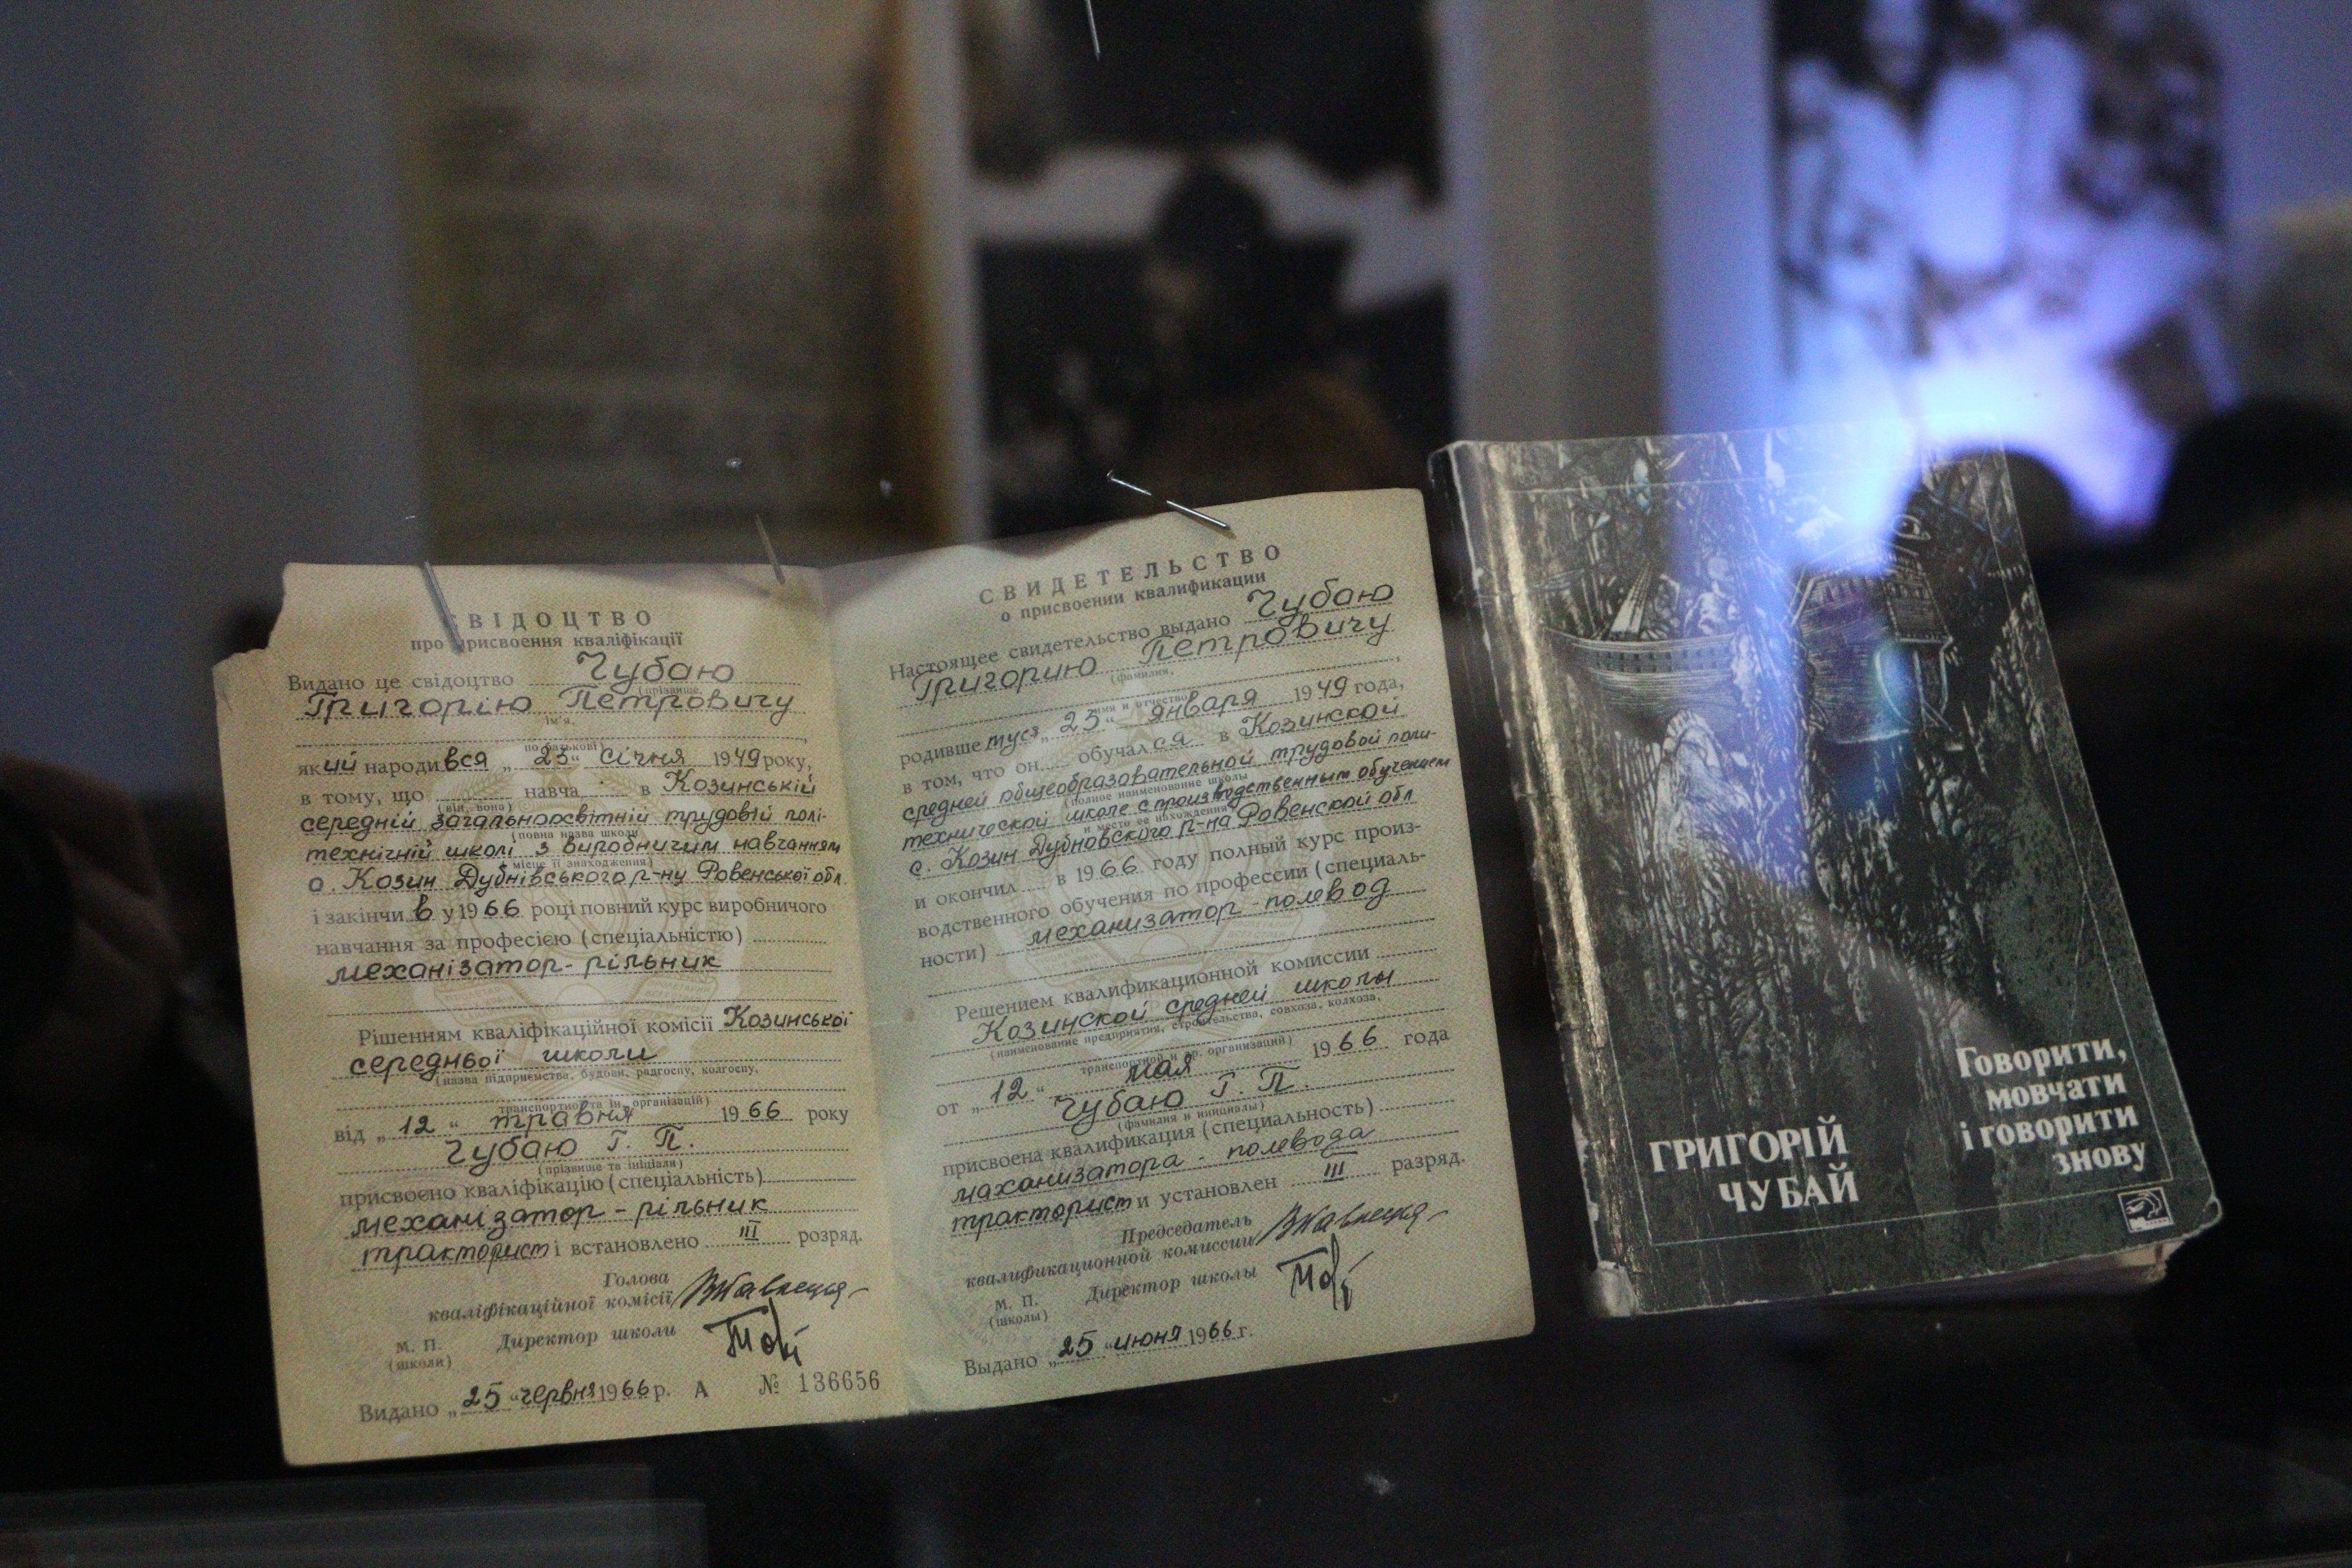 СВІДОЦТВО
про присвоєння кваліфікації
Видано це свідоцтво Чубаю
(прізвище,
Григорію Петровичу
ім'я,
по батькові)
який народився „23“ січня 1949 року,
в тому, що навча в Козинській
(він, вона)
середній загальноосвітній трудовій полі-
(повна назва школи
технічній школі з виробничим навчанням
і місце її знаходження)
с. Козин Дубнівського р-ну Ровенської обл.
і закінчив у 1966 році повний курс виробничого
навчання за професією (спеціальністю)
механізатор-рільник
Рішенням кваліфікаційної комісії Козинської
середньої школи
(назва підприємства, будови, радгоспу, колгоспу,
транспортної та ін. організацій)
від „12“ травня 1966 року
Чубаю Г. П.
(прізвище та ініціали)
присвоєно кваліфікацію (спеціальність)
механізатор-рільник
тракторист і встановлено III розряд.
Голова
кваліфікаційної комісії
М. П. Директор школи
(школи)
Видано „25“ червня 1966 р. А № 136656
СВИДЕТЕЛЬСТВО
о присвоении квалификации
Настоящее свидетельство выдано Чубаю
(фамилия,
Григорию Петровичу
имя и отчество)
родившемуся „23“ января 1949 года,
в том, что он обучался в Козинской
средней общеобразовательной трудовой поли-
(полное наименование школы
технической школе с производственным обучением
и место ее нахождения)
с. Козин Дубновского р-на Ровенской обл
и окончил в 1966 году полный курс произ-
водственного обучения по профессии (специаль-
ности) механизатор-полевод
Решением квалификационной комиссии
Козинской средней школы
(наименование предприятия, строительства, совхоза, колхоза,
транспортной и др. организаций)
от „12“ мая 1966 года
Чубаю Г. П.
(фамилия и инициалы)
присвоена квалификация (специальность)
механизатора-полевода
тракторист и установлен III разряд.
Председатель
квалификационной комиссии
М. П. Директор школы
(школы)
Выдано „25“ июня 1966 г.
ГРИГОРІЙ
ЧУБАЙ
Говорити,
мовчати
і говорити
знову